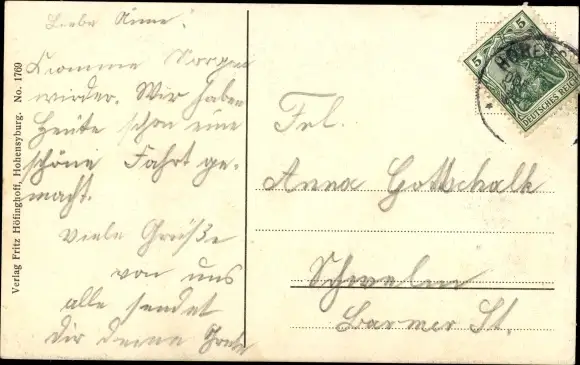 Liebe Änne!
Komme Morgen
wieder. Wir haben
Heute schon eine
schöne Fahrt ge-
macht.
Viele Grüße
von uns
alle sendet
Dir deine Grete
Frl.
Anna Gottschalk
Schwelm
Barmer St.
Verlag Fritz Höfinghoff, Hohensyburg. No. 1769
5
5
DEUTSCHES REICH
HOHENS